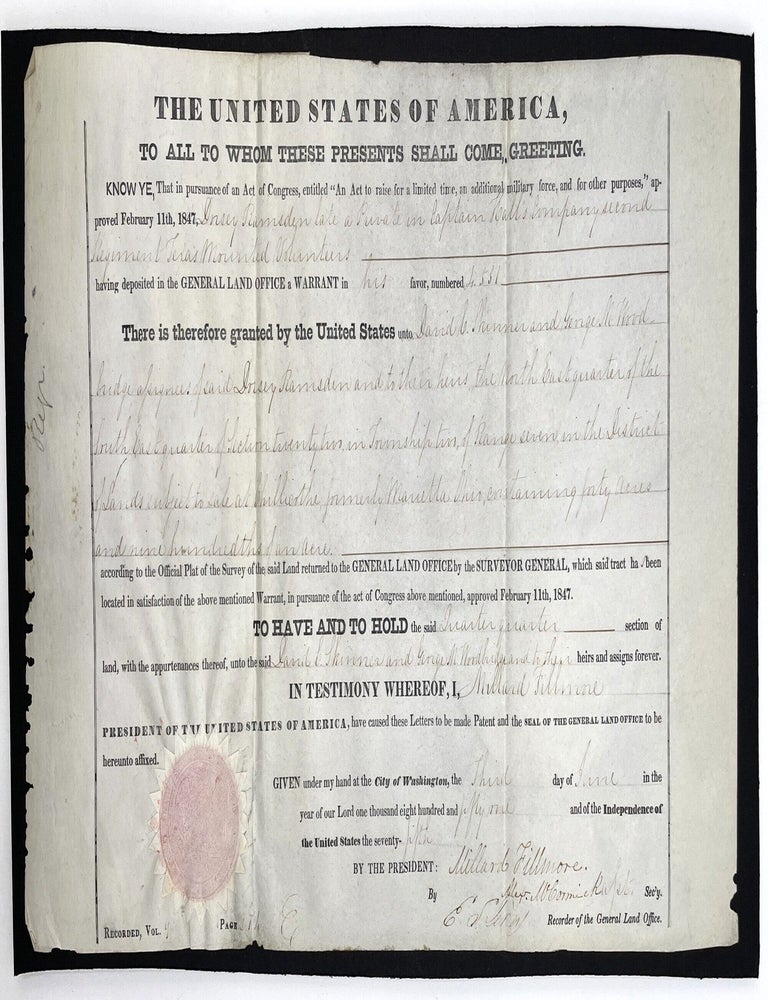 THE UNITED STATES OF AMERICA,
TO ALL TO WHOM THESE PRESENTS SHALL COME, GREETING.
KNOW YE, That in pursuance of an Act of Congress, entitled "An Act to raise for a limited time, an additional military force, and for other purposes," ap-
proved February 11th, 1847, Dorsey Ramsden late a Private in Captain Wall's Company second
Regiment Texas Mounted Volunteers
having deposited in the GENERAL LAND OFFICE a WARRANT in his favor, numbered 4551
There is therefore granted by the United States unto David C. Skinner and George M. Wood-
bridge assignees of said Dorsey Ramsden and to their heirs, the North East quarter of the
South East quarter of Section twenty two, in Township two, of Range seven in the District
of Lands subject to sale at Chillicothe formerly Marietta Ohio, containing forty Acres
and nine hundredths of an Acre.
according to the Official Plat of the Survey of the said Land returned to the GENERAL LAND OFFICE by the SURVEYOR GENERAL, which said tract has been
located in satisfaction of the above mentioned Warrant, in pursuance of the act of Congress above mentioned, approved February 11th, 1847.
TO HAVE AND TO HOLD the said Quarter quarter section of
land, with the appurtenances thereof, unto the said David C. Skinner and George M. Woodbridge and to their heirs and assigns forever.
IN TESTIMONY WHEREOF, I, Millard Fillmore
PRESIDENT OF THE UNITED STATES OF AMERICA, have caused these Letters to be made Patent and the SEAL OF THE GENERAL LAND OFFICE to be
hereunto affixed.
GIVEN under my hand at the City of Washington, the Third day of June in the
year of our Lord one thousand eight hundred and fifty one and of the Independence of
the United States the seventy-fifth
BY THE PRESIDENT: Millard Fillmore.
By Alex. McCormick Sec'y.
Recorder of the General Land Office.
RECORDED, VOL. PAGE